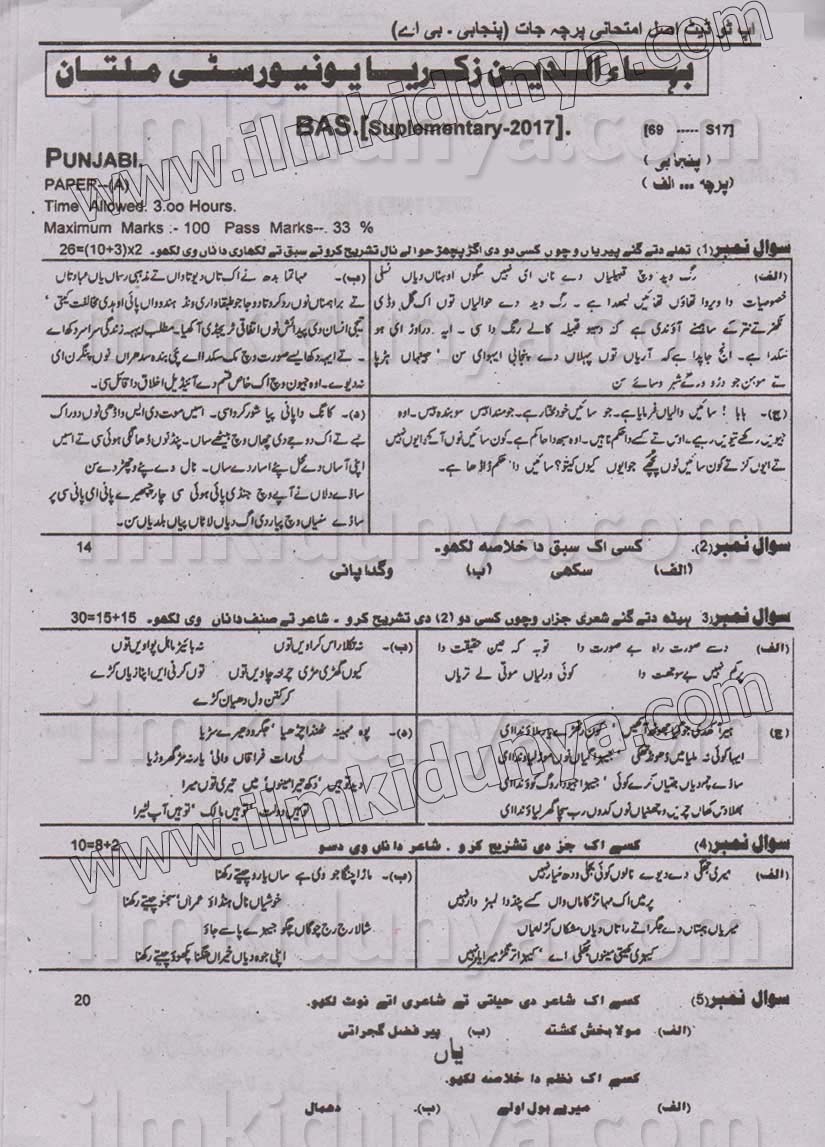 اپ ٹو ڈیٹ اصل امتحانی پرچہ جات (پنجابی ۔ بی اے)
بہاءالدین زکریا یونیورسٹی ملتان
BAS.[Suplementary-2017].
[69 ----- S17]
PUNJABI.
(پنجابی)
PAPER--(A)
(پرچہ ... الف)
Time Allowed: 3.oo Hours.
Maximum Marks :- 100 Pass Marks--. 33 %
سوال نمبر(1) تھلے دتے گئے پیریاں وچوں کسی دو دی اگڑ پچھڑ حوالے نال تشریح کرو تے سبق تے لکھاری دا ناں وی لکھو۔ 26=(10+3)x2
(الف)۔ رگ وید وچ قبیلیاں دے ناں ای نہیں سگوں اوہناں دیاں نسلی
خصوصیات دا ویروا تھاؤں تھائیں لبھدا ہے ۔ رگ وید دے حوالیاں توں اک گل وڈی
نکھر نتر کے ساہمنے آؤندی ہے کہ دسیو قبیلہ کالے رنگ دا سی ۔ ایہہ دراوڑ ای ہو
سکدا ہے ۔ انج جاپدا ہے کہ آریاں توں پہلاں دے پنجابی ایہو ای سن ' جیہناں ہڑپا
تے موہن جو دڑو ورگے شہر وسائے سن
(ب)۔ مہاتما بدھ نے اک تاں دیوتاواں تے مذہبی رسماں یاں عبادتاں
تے براہمناں نوں رد کرتا دوجا جو طبقاواری ونڈ ہندوواں پائی اوہدی مخالفت کیتی '
تیجی انسان دی پیدائش نوں اتفاقی ٹریجڈی آکھیا۔ مطلب ایہہ زندگی سراسر دکھ اے
۔ تے ایہہ دکھ ایسے صورت وچ مک سکدا اے پئی بندہ سدھراں نوں پنگرن ای
نہ دیوے۔ اوہ جیون وچ اک خاص قسم دے آئیڈیل اخلاق دا قائل سی۔
(ج)۔ بابا ! سائیں والیاں فرمایا ہے۔ جو سائیں خود مختار ہے۔ جو مندا ہیس سو بندہ ہیس۔ اوہ
جیویں رکھے تیویں رہیے۔ اوس تے کسے دا حکم ناہیں۔ اوہ سبھ دا حاکم ہے۔ کون سائیں نوں آکھے ایویں نہیں
تے ایوں کر تے کون سائیں نوں پچھے جو ایوں کیوں کیتو؟ سائیں دا حکم ڈاڈھا ہے۔
(د)۔ کانگ دا پانی پیا شور کردا سی۔ اسیں موت دی ایس واڈھی نوں دور اک
بنے تے اک دوجے دی چھاں وچ بیٹھے ساں۔ پنڈ نوں ڈھا لگی ہوئی سی تے اسیں
اپنی آساں دے محل پئے اساردے ساں۔ نال دے پنے وچھڑدے سن
ساڈے دلاں نے آپے وچ جنڈی پائی ہوئی سی چار چفیرے پانی ای پانی سی پر
ساڈے سنیاں وچ پیار دی اگ دیاں لاٹاں پیاں بلدیاں سن۔
سوال نمبر(2)۔ کسی اک سبق دا خلاصہ لکھو۔ 14
(الف) سکھی (ب) وگدا پانی
سوال نمبر 3۔ ہیٹھ دتے گئے شعری جزاں وچوں کسی دو (2) دی تشریح کرو ۔ شاعر تے صنف دا ناں وی لکھو۔ 15+15=30
(الف)۔ دسے صورت راہ بے صورت دا توبہ کہ عین حقیقت دا
پر کم نہیں بے سوجھت دا کوئی ورلیاں موتی لے تریاں
(ب)۔ نہ تکلا راس کراویں توں نہ بائیڑ ماہل پواویں توں
کیوں گھڑی مڑی چرخہ چاویں توں توں کرنی ایں اپنا زیاں کڑے
کر کتن ول دھیان کڑے
(ج)۔
ایہا کوئی نہ ملیا میں ڈھونڈ تھکی ' جیہڑا گیاں نوں موڑ لیاوندا ای
ساڈے چم دیاں جتیاں کرے کوئی ' جیہڑا جیو دا روگ گواوندا ای
بھلا دس کھاں چریں وچھنیاں نوں کدوں رب سچا گھر لیاوندا ای
(د)۔ پوہ مہینہ ٹھنڈا چڑھیا ' جگر دھیرے سڑیا
لمی رات فراقاں والی ' یار نہ مڑ گھر وڑیا
وید توہیں ' دکھ تیرا مینوں ' میں تیری توں میرا
توہیں دولت ' توہیں مالک ' توہیں آپ لٹیرا
سوال نمبر(4) کسے اک جز دی تشریح کرو ۔ شاعر دا ناں وی دسو 8+2=10
(الف)۔ میری جھگی دے دیوے نالوں کوئی بجلی ودھ ضیا ر نہیں
پر میں اک مہاتڑ کاماں واں کے پنڈ دا لمبڑدار نہیں
میریاں بھیناں دے جگراتے راتاں دیاں مشکاں کڑھ لیاں
(ب)۔ ماڑا چنگا جو وی ہے ساں یارو چیتے رکھنا
خوشیاں نال ہنڈاؤ عمراں سجنو چیتے رکھنا
شالا رج رج چوگاں چگو جیہڑے پاسے جاؤ
اپنی جوہ دیاں خیراں منگنا پکھوؤ چیتے رکھنا
سوال نمبر(5) کسے اک شاعر دی حیاتی تے شاعری اتے نوٹ لکھو۔ 20
(الف)۔ مولا بخش کشتہ (ب) پیر فضل گجراتی
یاں
کسے اک نظم دا خلاصہ لکھو۔
(الف) میرے بول اولے (ب)۔ دھمال
www.ilmkidunya.com